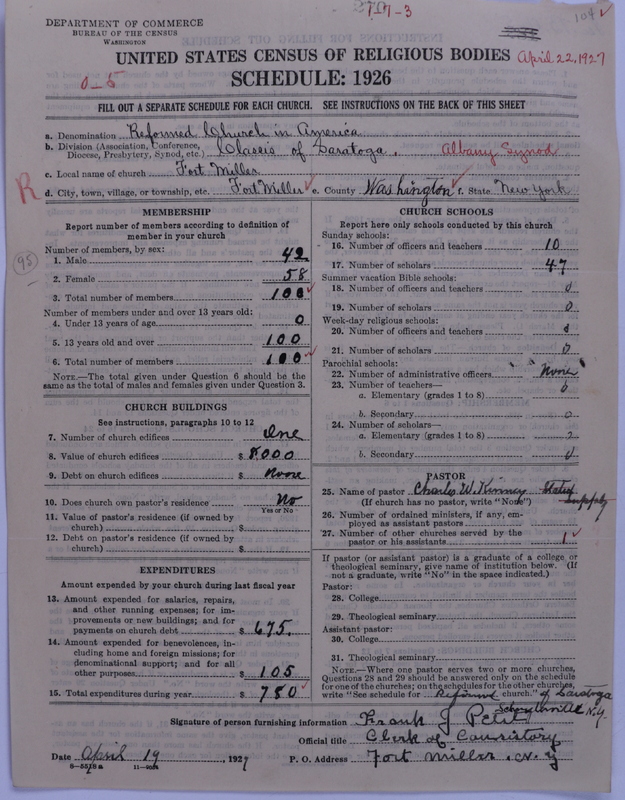 DEPARTMENT OF COMMERCE
BUREAU OF THE CENSUS
WASHINGTON
1-7-3
104 ✓
UNITED STATES CENSUS OF RELIGIOUS BODIES
April 22, 1927
0-5
SCHEDULE: 1926
FILL OUT A SEPARATE SCHEDULE FOR EACH CHURCH. SEE INSTRUCTIONS ON THE BACK OF THIS SHEET
a. Denomination Reformed Church in America
b. Division (Association, Conference, Diocese, Presbytery, Synod, etc.) Classis of Saratoga, Albany Synod
c. Local name of church Fort Miller
R
d. City, town, village, or township, etc. Fort Miller ✓ e. County Washington ✓ f. State New York
MEMBERSHIP
Report number of members according to definition of member in your church
95
Number of members, by sex:
1. Male 42
2. Female 58
3. Total number of members 100 ✓
Number of members under and over 13 years old:
4. Under 13 years of age 0
5. 13 years old and over 100
6. Total number of members 100 ✓
NOTE.—The total given under Question 6 should be the same as the total of males and females given under Question 3.
CHURCH BUILDINGS
See instructions, paragraphs 10 to 12
7. Number of church edifices One
8. Value of church edifices $ 8,000
9. Debt on church edifices $ None
10. Does church own pastor's residence No
Yes or No
11. Value of pastor's residence (if owned by church) $
12. Debt on pastor's residence (if owned by church) $
EXPENDITURES
Amount expended by your church during last fiscal year
13. Amount expended for salaries, repairs, and other running expenses; for improvements or new buildings; and for payments on church debt $ 675.
14. Amount expended for benevolences, including home and foreign missions; for denominational support; and for all other purposes $ 105
15. Total expenditures during year $ 780 ✓
CHURCH SCHOOLS
Report here only schools conducted by this church
Sunday schools:
16. Number of officers and teachers 10
17. Number of scholars 47
Summer vacation Bible schools:
18. Number of officers and teachers 0
19. Number of scholars 0
Week-day religious schools:
20. Number of officers and teachers 0
21. Number of scholars 0
Parochial schools:
22. Number of administrative officers None
23. Number of teachers—
a. Elementary (grades 1 to 8) 0
b. Secondary 0
24. Number of scholars—
a. Elementary (grades 1 to 8)
b. Secondary 0
PASTOR
25. Name of pastor Charles W. Kinney Stated Supply
(If church has no pastor, write "None")
26. Number of ordained ministers, if any, employed as assistant pastors
27. Number of other churches served by the pastor or his assistants 1 ✓
If pastor (or assistant pastor) is a graduate of a college or theological seminary, give name of institution below. (If not a graduate, write "No" in the space indicated.)
Pastor:
28. College
29. Theological seminary
Assistant pastor:
30. College
31. Theological seminary
NOTE.—Where one pastor serves two or more churches, Questions 28 and 29 should be answered only on the schedule for one of the churches; on the schedules for the other churches, write "See schedule for Reformed church." of Saratoga
Schuylerville N.Y.
Signature of person furnishing information Frank J Petit
Official title Clerk of Consistory
Date April 19, 1927 P. O. Address Fort Miller, N. Y
8-5518a 11-9034